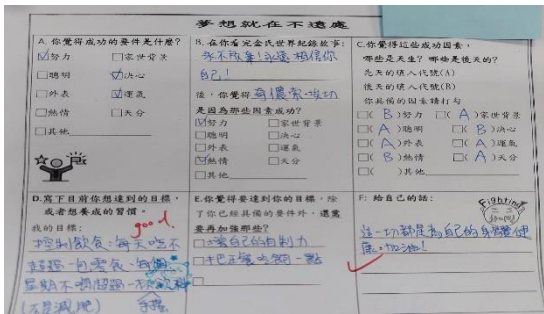 夢想就在不遠處
A. 你覺得成功的要件是什麼?
☑努力 □家世背景
□聰明 ☑決心
□外表 ☑運氣
□熱情 □天分
□其他
B. 在你看完金氏世界紀錄故事:
永不放棄!永遠相信你
自己!
後,你覺得
是因為那些因素成功?
☑努力 □家世背景
□聰明 □決心
□外表 □運氣
☑熱情 □天分
□其他
C. 你覺得這些成功因素,
哪些是天生?哪些是後天的?
先天的填入代號(A)
後天的填入代號(B)
你具備的因素請打勾
□( B )努力 □( A )家世背景
□( A )聰明 □( B )決心
□( A )外表 □( A )運氣
□( B )熱情 □( A )天分
□( )其他
D. 寫下目前你想達到的目標,
或者想養成的習慣。
good.
我的目標:
控制飲食:每天吃不
超過一包零食,每個
星期不喝超過一杯飲料
(不是減肥)
E. 你覺得要達到你的目標,除
了你已經具備的要件外,還需
要再加強那些?
□自己的自制力
□把正餐吃飽一點
□
F: 給自己的話:
Fighting
這一切都是為自己的身體健
康,加油!